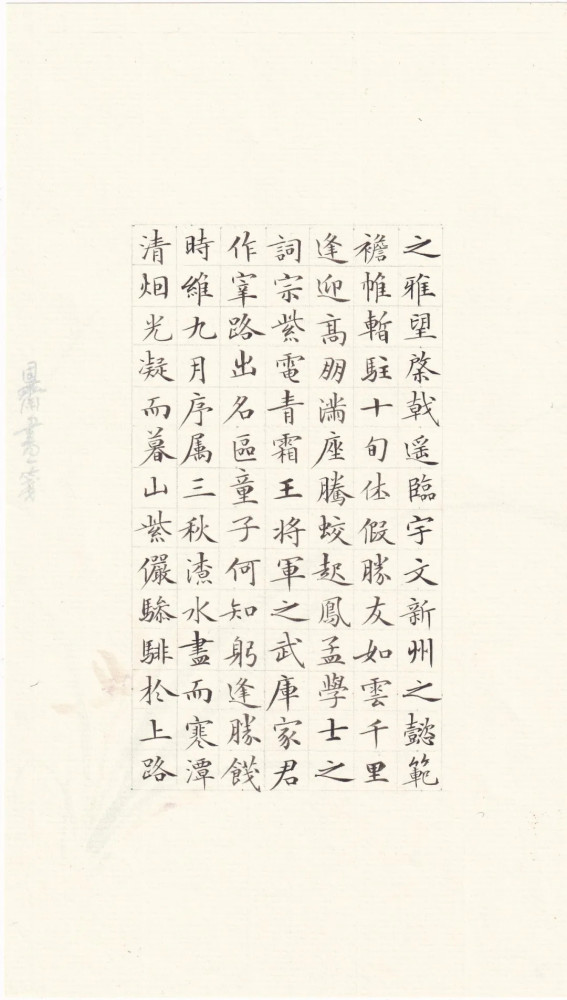 之雅望棨戟遥臨宇文新州之懿範
襜帷暫駐十旬休假勝友如雲千里
逢迎髙朋滿座騰蛟起鳳孟學士之
詞宗紫電青霜王将軍之武庫家君
作宰路出名區童子何知躬逢勝餞
時維九月序属三秋潦水盡而寒潭
清烟光凝而暮山紫儼驂騑於上路